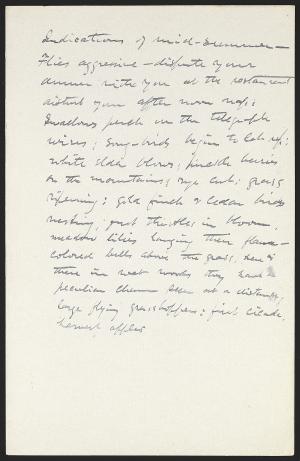 Indications of mid-summer —
Flies aggressive — dispute your
dinner with you at the restaurant
disturb your after noon nap;
Swallows perch on the telegraph
wires; song-birds begin to
white blows; berries
on the mountains; rye cut; grass
ripening; gold finch & cedar birds
nesting; first thistles in bloom,
meadow lilies hanging their flame-
colored bells above the grass. Here &
there in wet woods they have a
peculiar charm seen at a distance;
large flying grasshoppers; first cicada,
harvest apples